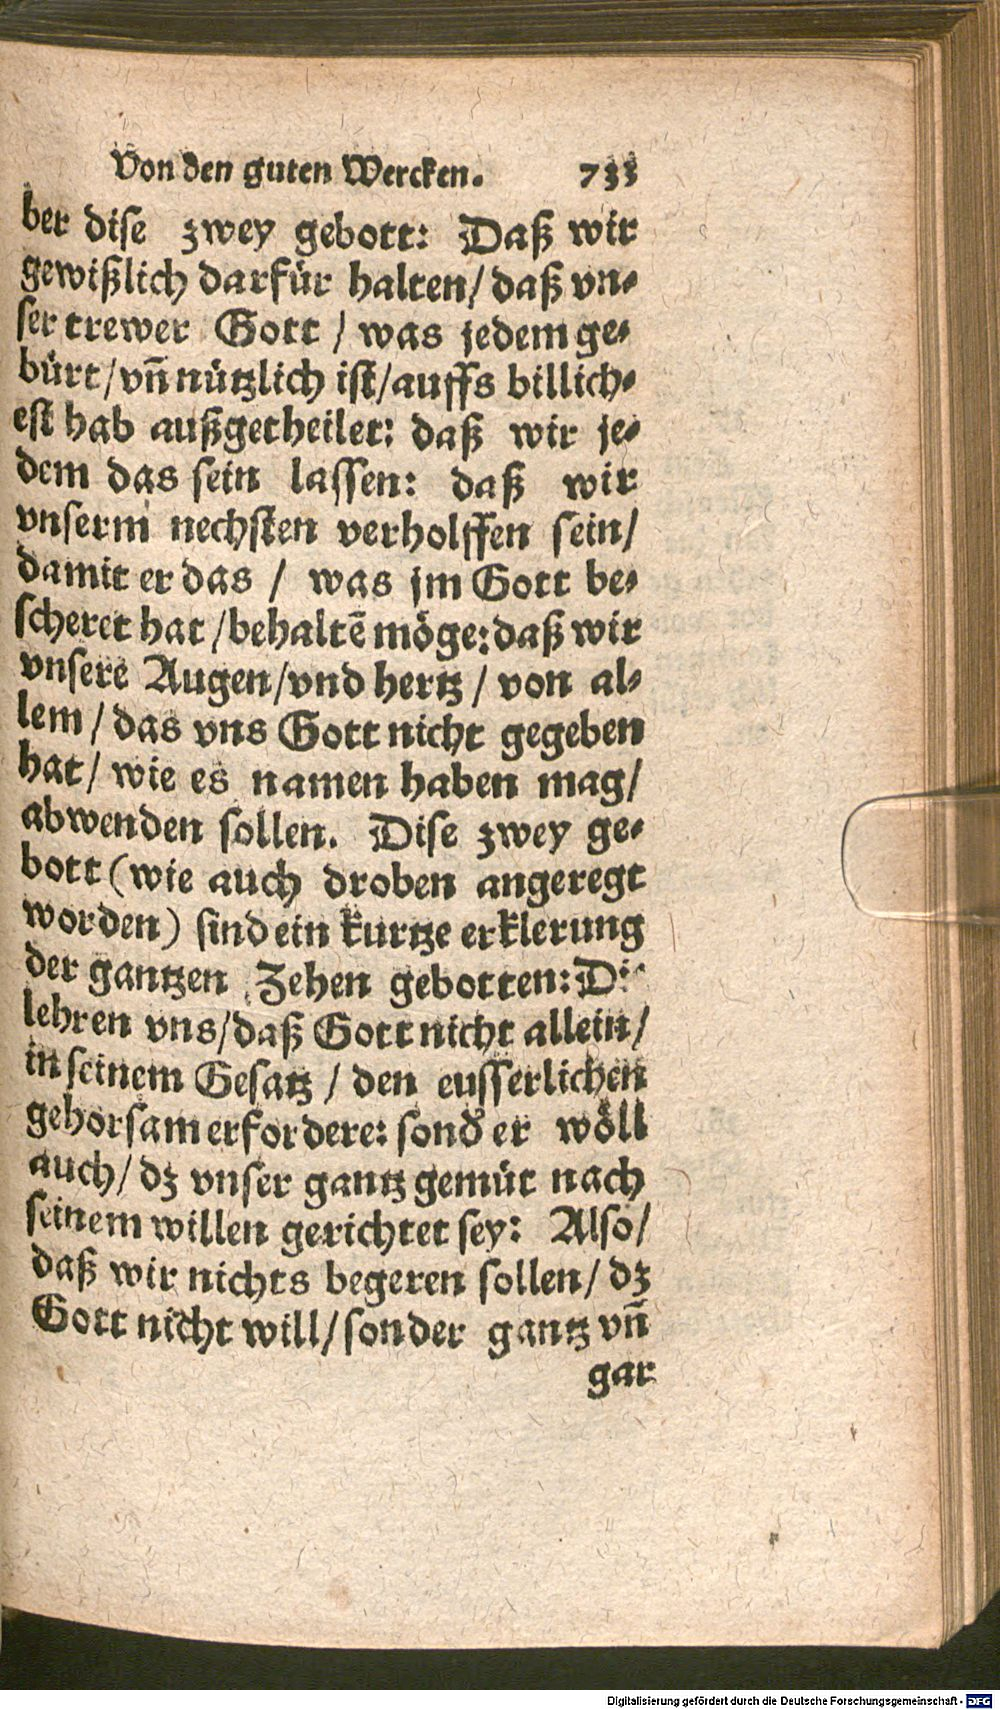 Von den guten Wercken. 733
ber dise zwey gebott: Daß wir
gewißlich darfür halten/ daß vn-
ser trewer Gott / was jedem ge-
bürt/ vñ nützlich ist/ auffs billich-
est hab außgetheilet: daß wir je-
dem das sein lassen: daß wir
vnserm nechsten verholffen sein/
damit er das / was jm Gott be-
scheret hat / behaltē möge: daß wir
vnsere Augen/ vnd hertz / von al-
lem / das vns Gott nicht gegeben
hat / wie es namen haben mag/
abwenden sollen. Dise zwey ge-
bott (wie auch droben angeregt
worden) sind ein kurtze erklerung
der gantzen Zehen gebotten: Di
lehren vns/ daß Gott nicht allein/
in seinem Gesatz / den eusserlichen
gehorsam erfordere: sond̕ er wöll
auch/ dz vnser gantz gemüt nach
seinem willen gerichtet sey: Also/
daß wir nichts begeren sollen/ dz
Gott nicht will/ sonder gantz vñ
gar
Digitalisierung gefördert durch die Deutsche Forschungsgemeinschaft - DFG